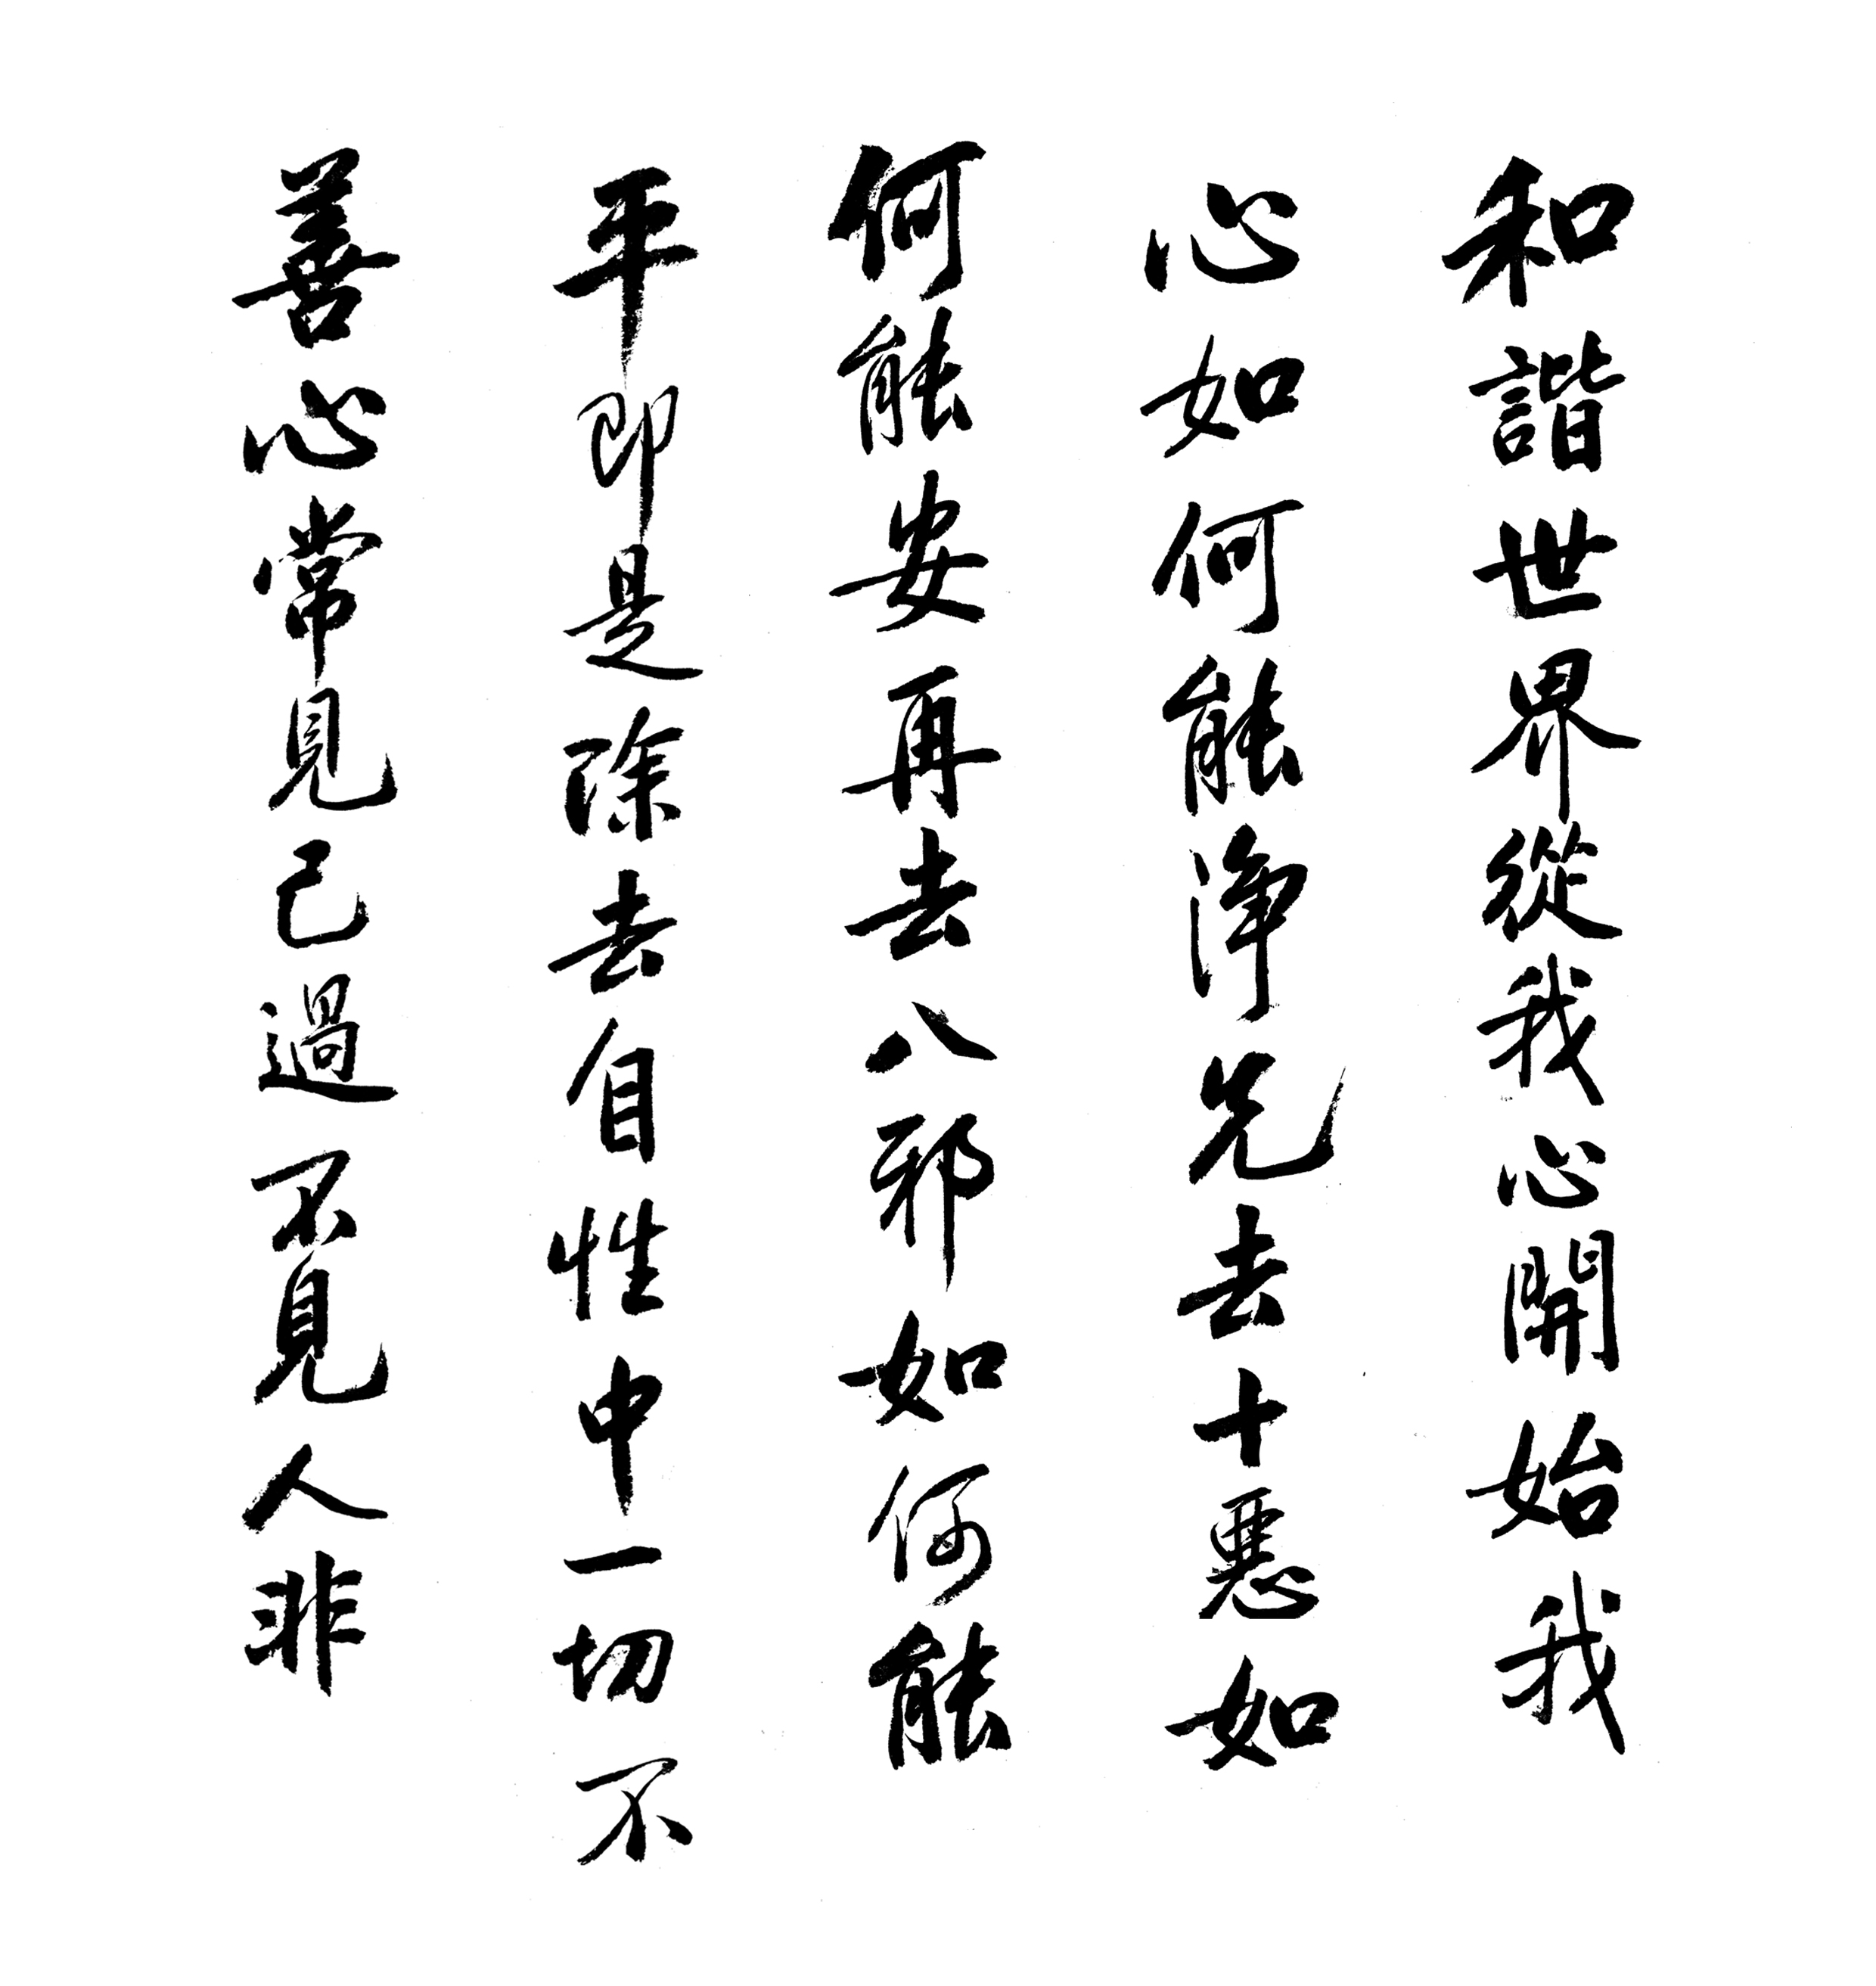 和諧世界從我心開始我
心如何能淨先去十惡如
何能安再去八邪如何能
平即是除去自性中一切不
善心常見己過不見人非